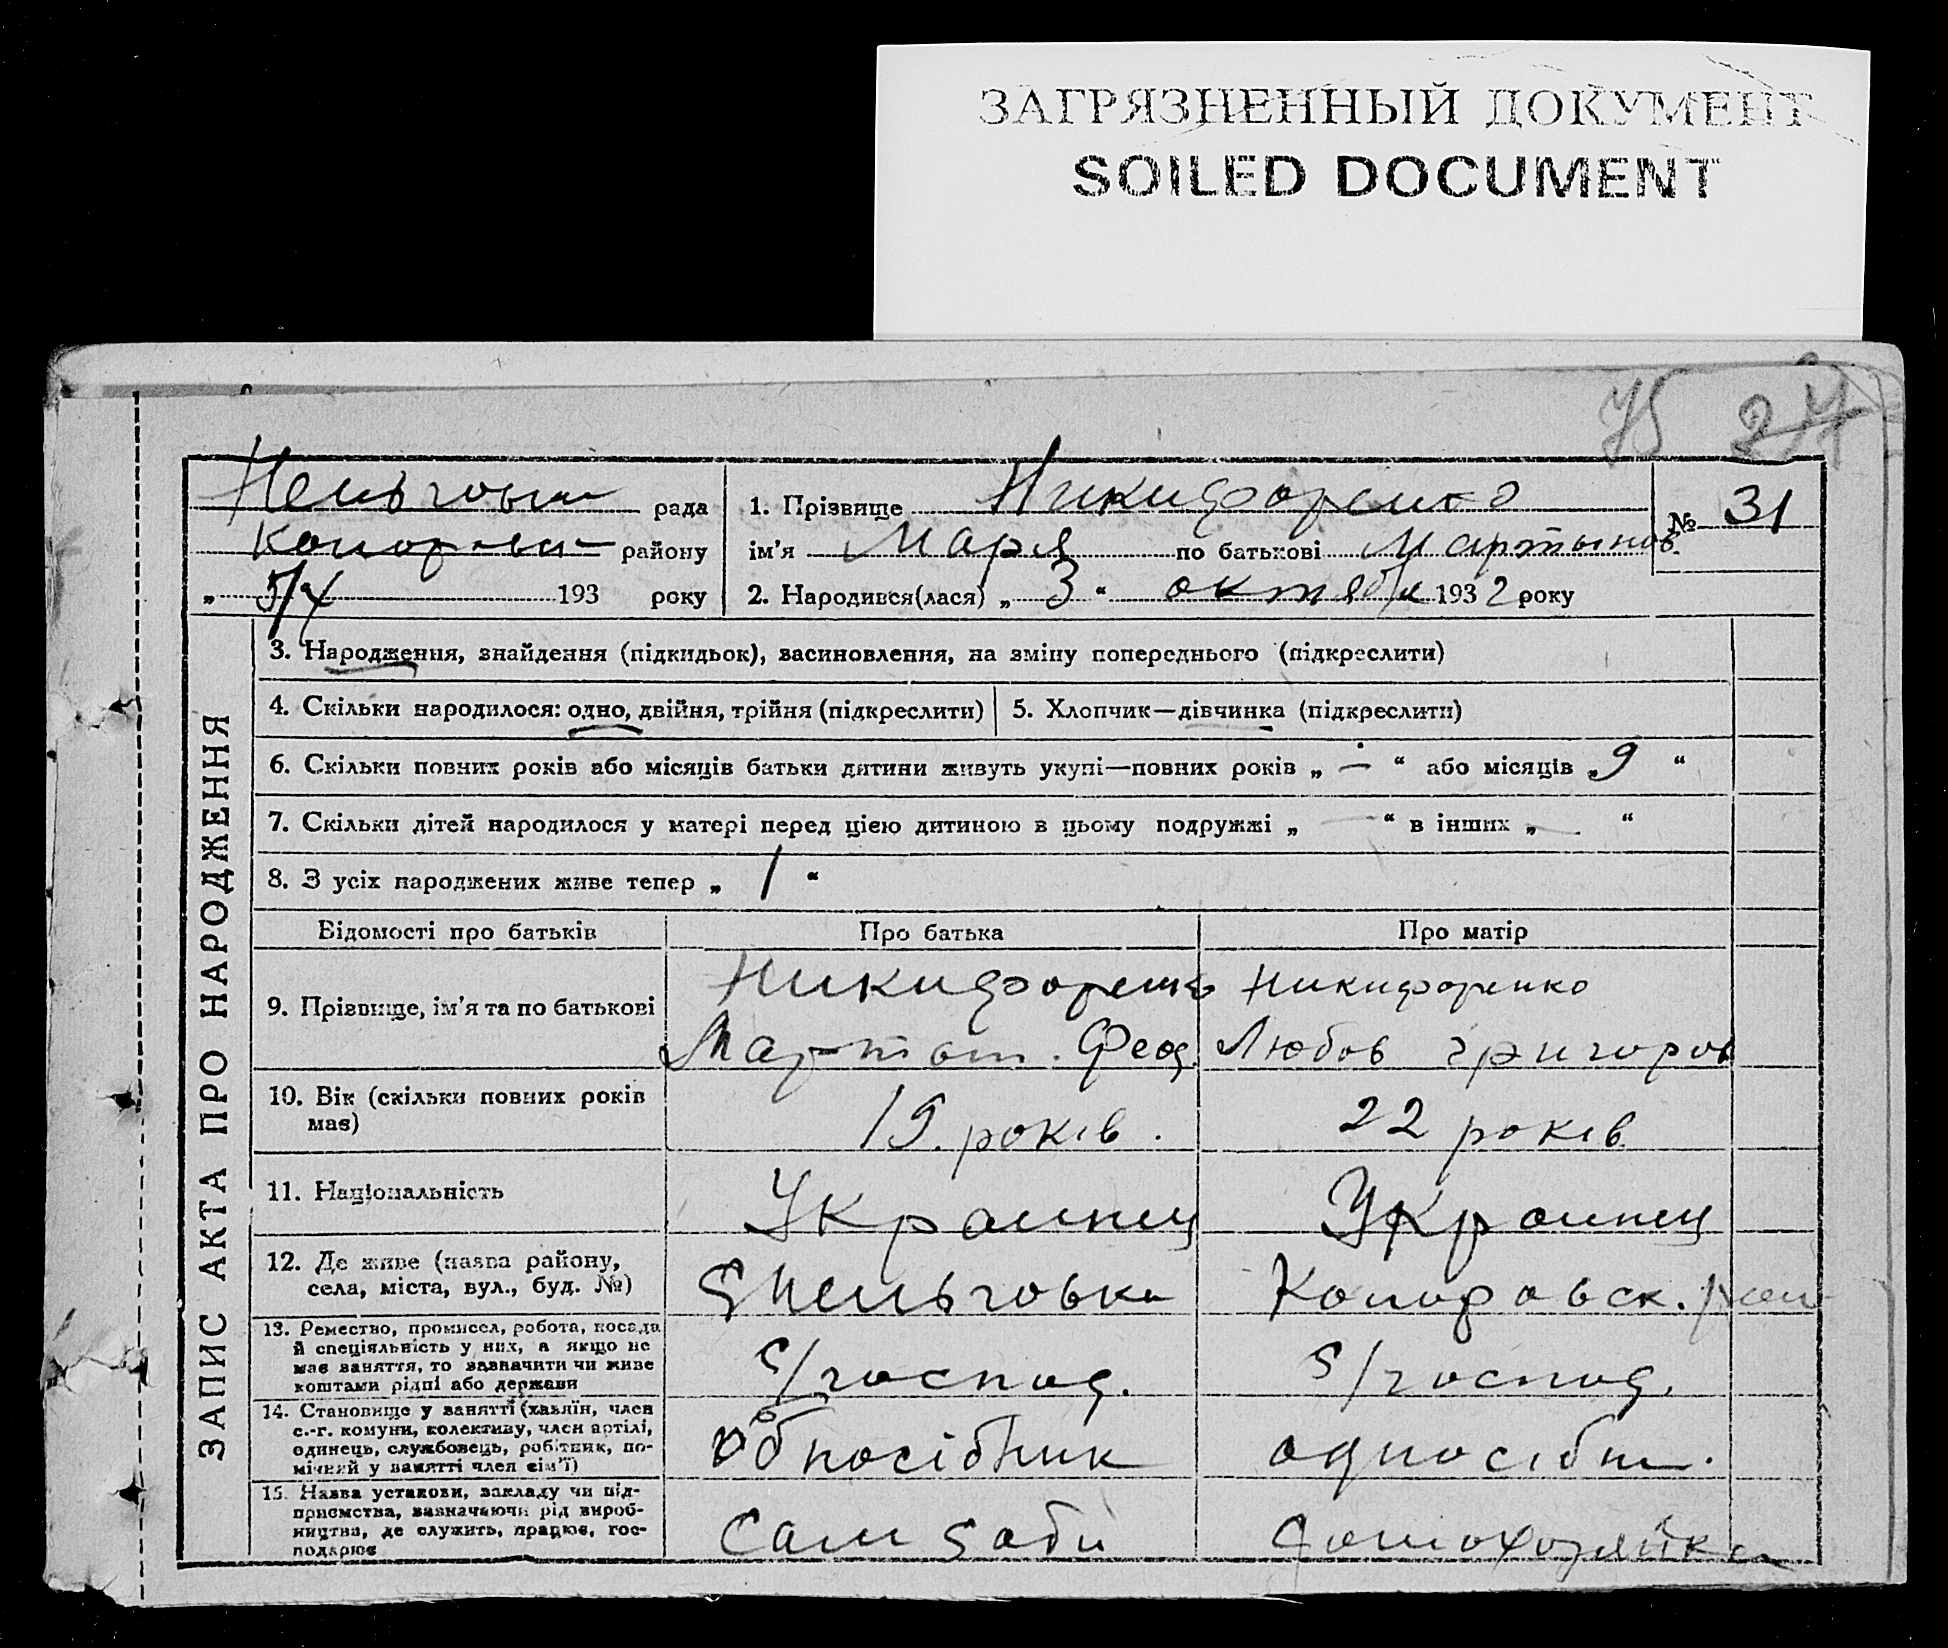 ЗАГРЯЗНЕННЫЙ ДОКУМЕНТ
SOILED DOCUMENT
75 27
рада
району
„ 5/X 193 року
1. Прізвище Никифоренко
ім'я Маря по батькові Мартынов.
№ 31
2. Народився(лася) „ 3 “ октября 1932 року
ЗАПИС АКТА ПРО НАРОДЖЕННЯ
3. Народження, знайдення (підкидьок), засиновлення, на зміну попереднього (підкреслити)
4. Скільки народилося: одно, двійня, трійня (підкреслити)
5. Хлопчик—дівчинка (підкреслити)
6. Скільки повних років або місяців батьки дитини живуть укупі—повних років „ — “ або місяців „ 9 “
7. Скільки дітей народилося у матері перед цією дитиною в цьому подружжі „ — “ в інших „ — “
8. З усіх народжених живе тепер „ 1 “
Відомості про батьків
Про батька
Про матір
9. Прізвище, ім'я та по батькові
Никифоренко
Март Фед.
Никифоренко
Любов Григоров
10. Вік (скільки повних років
має)
19. років.
22 років
11. Національність
Украинец
Украинец
12. Де живе (назва району,
села, міста, вул., буд. №)
С Пельговка
Копоровск. рай
13. Ремество, промисел, робота, посада
й спеціяльність у них, а якщо не
має заняття, то зазначити чи живе
коштами рідні або держави
с/господ.
с/господ.
14. Становище у занятті (хазяїн, член
с.-г. комуни, колективу, член артілі,
одинець, службовець, робітник, по-
мічний у занятті член сім'ї)
односібник
односібн.
15. Назва установи, закладу чи під-
приємства, зазначаючи рід вироб-
ництва, де служить, працює, гос-
подарює
Сам собі
домохозяйка